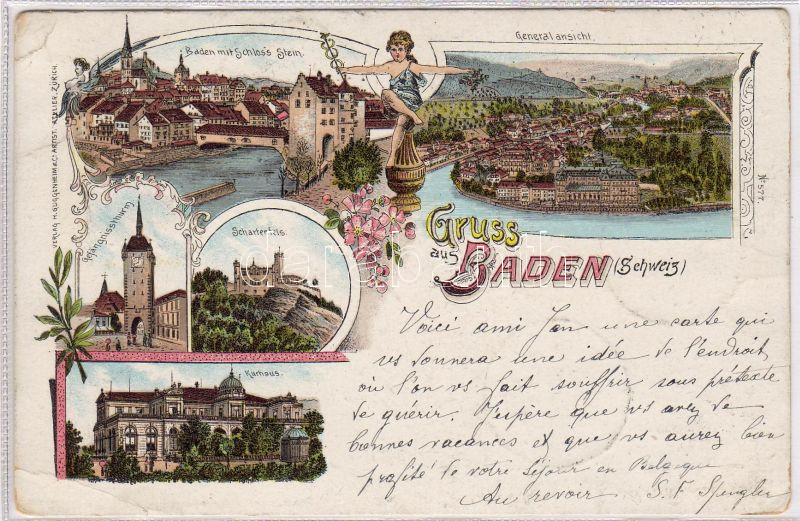 Baden mit Schloss Stein.
Generalansicht.
VERLAG H. GUGGENHEIM & Co ARTIST. ATELIER, ZÜRICH.
No 577.
Gefängnissthurm
Schartenfels.
Gruss
aus BADEN (Schweiz)
Kurhaus.
Voici ami Jan une carte qui
vs donnera une idée de l'endroit
où l'on vs fait souffrir sous prétexte
de guérir. J'espère que vs avez de
bonnes vacances et que vs aurez bien
profité de votre séjour en Belgique
Au revoir S. F. Spengler
darabanth